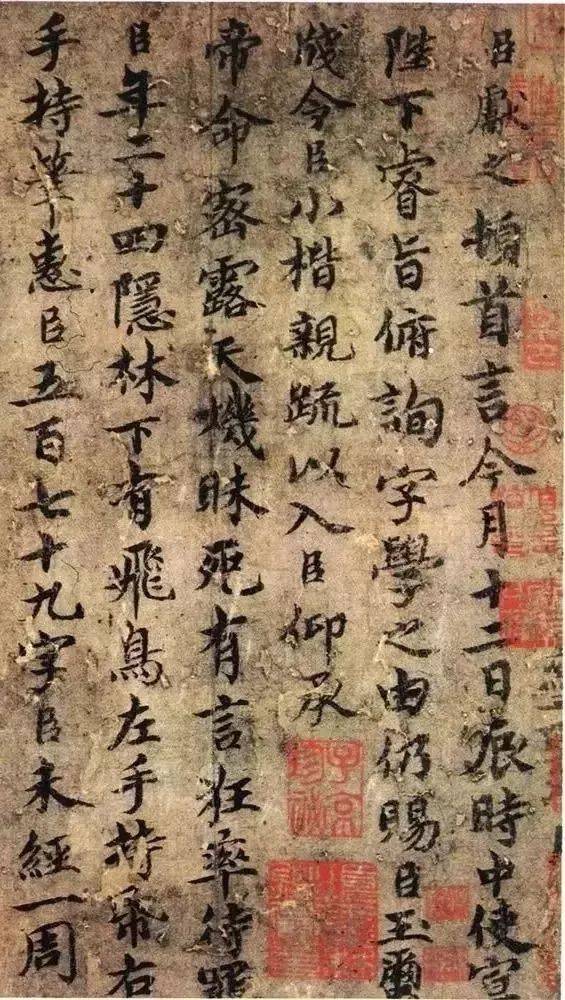 臣獻之頓首言今月十二日辰時中使宣
陛下睿旨俯詢字學之由仍賜臣玉璽
牋令臣小楷親疏以入臣仰承
帝命密露天機昧死有言狂率待罪
臣年二十四隱林下有飛鳥左手持帋右
手持筆惠臣五百七十九字臣未經一周
子京珍秘